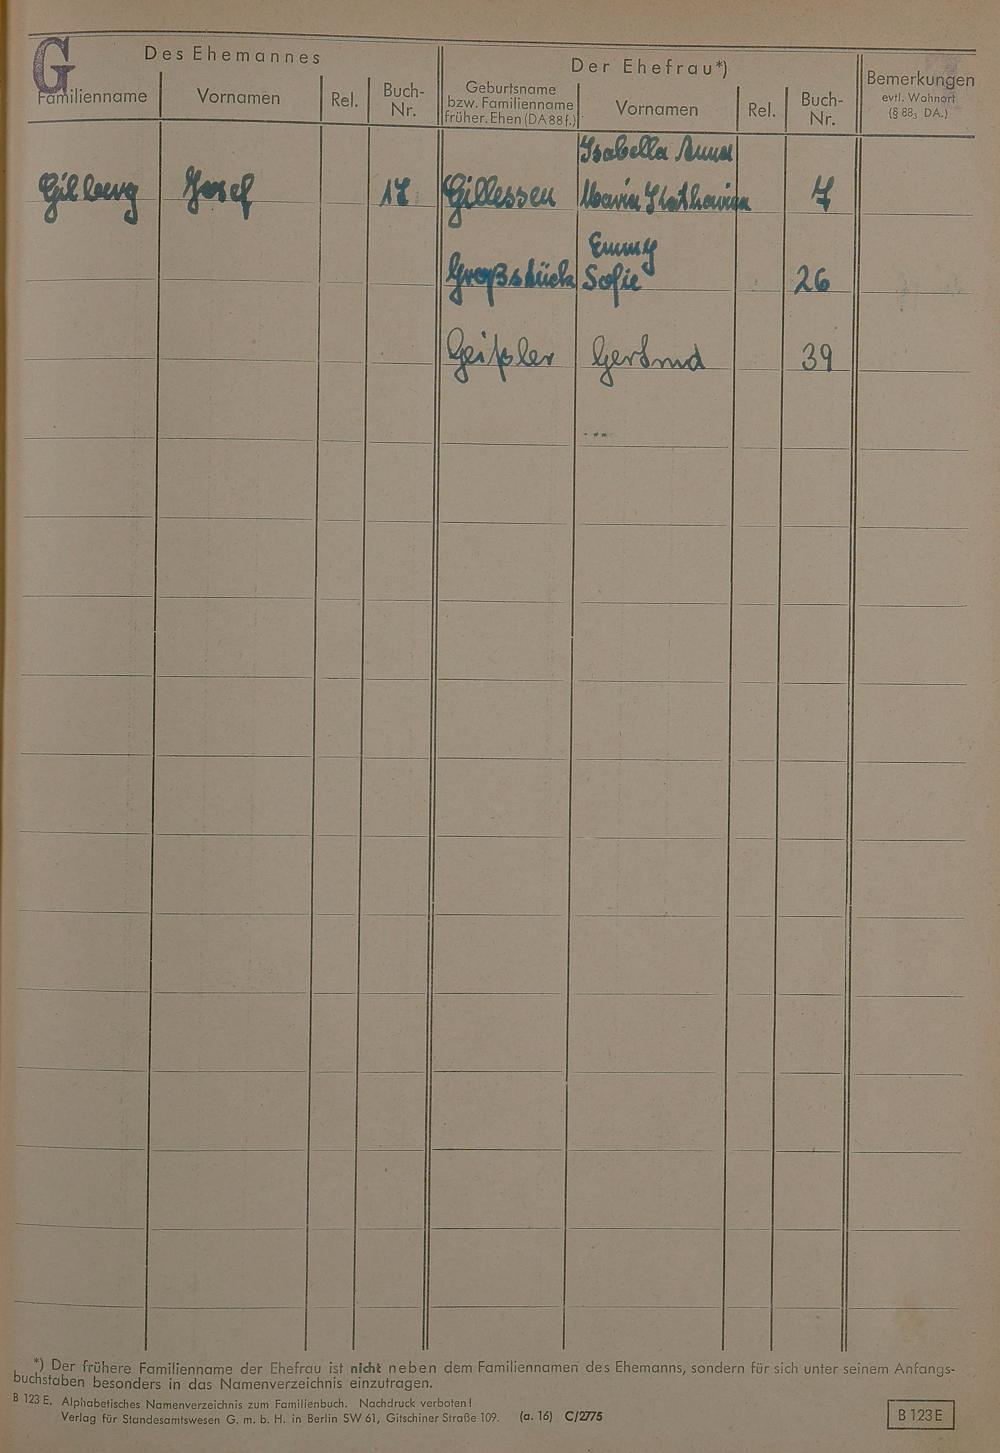 G
Des Ehemannes
Der Ehefrau*)
Familienname
Vornamen
Rel.
Buch-
Nr.
Geburtsname
bzw. Familienname
früher. Ehen (DA 88 f.)
Vornamen
Rel.
Buch-
Nr.
Bemerkungen
evtl. Wohnort
(§ 88₃ DA.)
Isabella Anna
Gilberg Josef 17 Gillessen Maria Katharina 7
Emmy
Großstück Sofie 26
Geißler Gertrud 39
*) Der frühere Familienname der Ehefrau ist nicht neben dem Familiennamen des Ehemanns, sondern für sich unter seinem Anfangs-
buchstaben besonders in das Namenverzeichnis einzutragen.
B 123 E. Alphabetisches Namenverzeichnis zum Familienbuch. Nachdruck verboten!
Verlag für Standesamtswesen G. m. b. H. in Berlin SW 61, Gitschiner Straße 109. (a. 16) C/2775
B 123 E